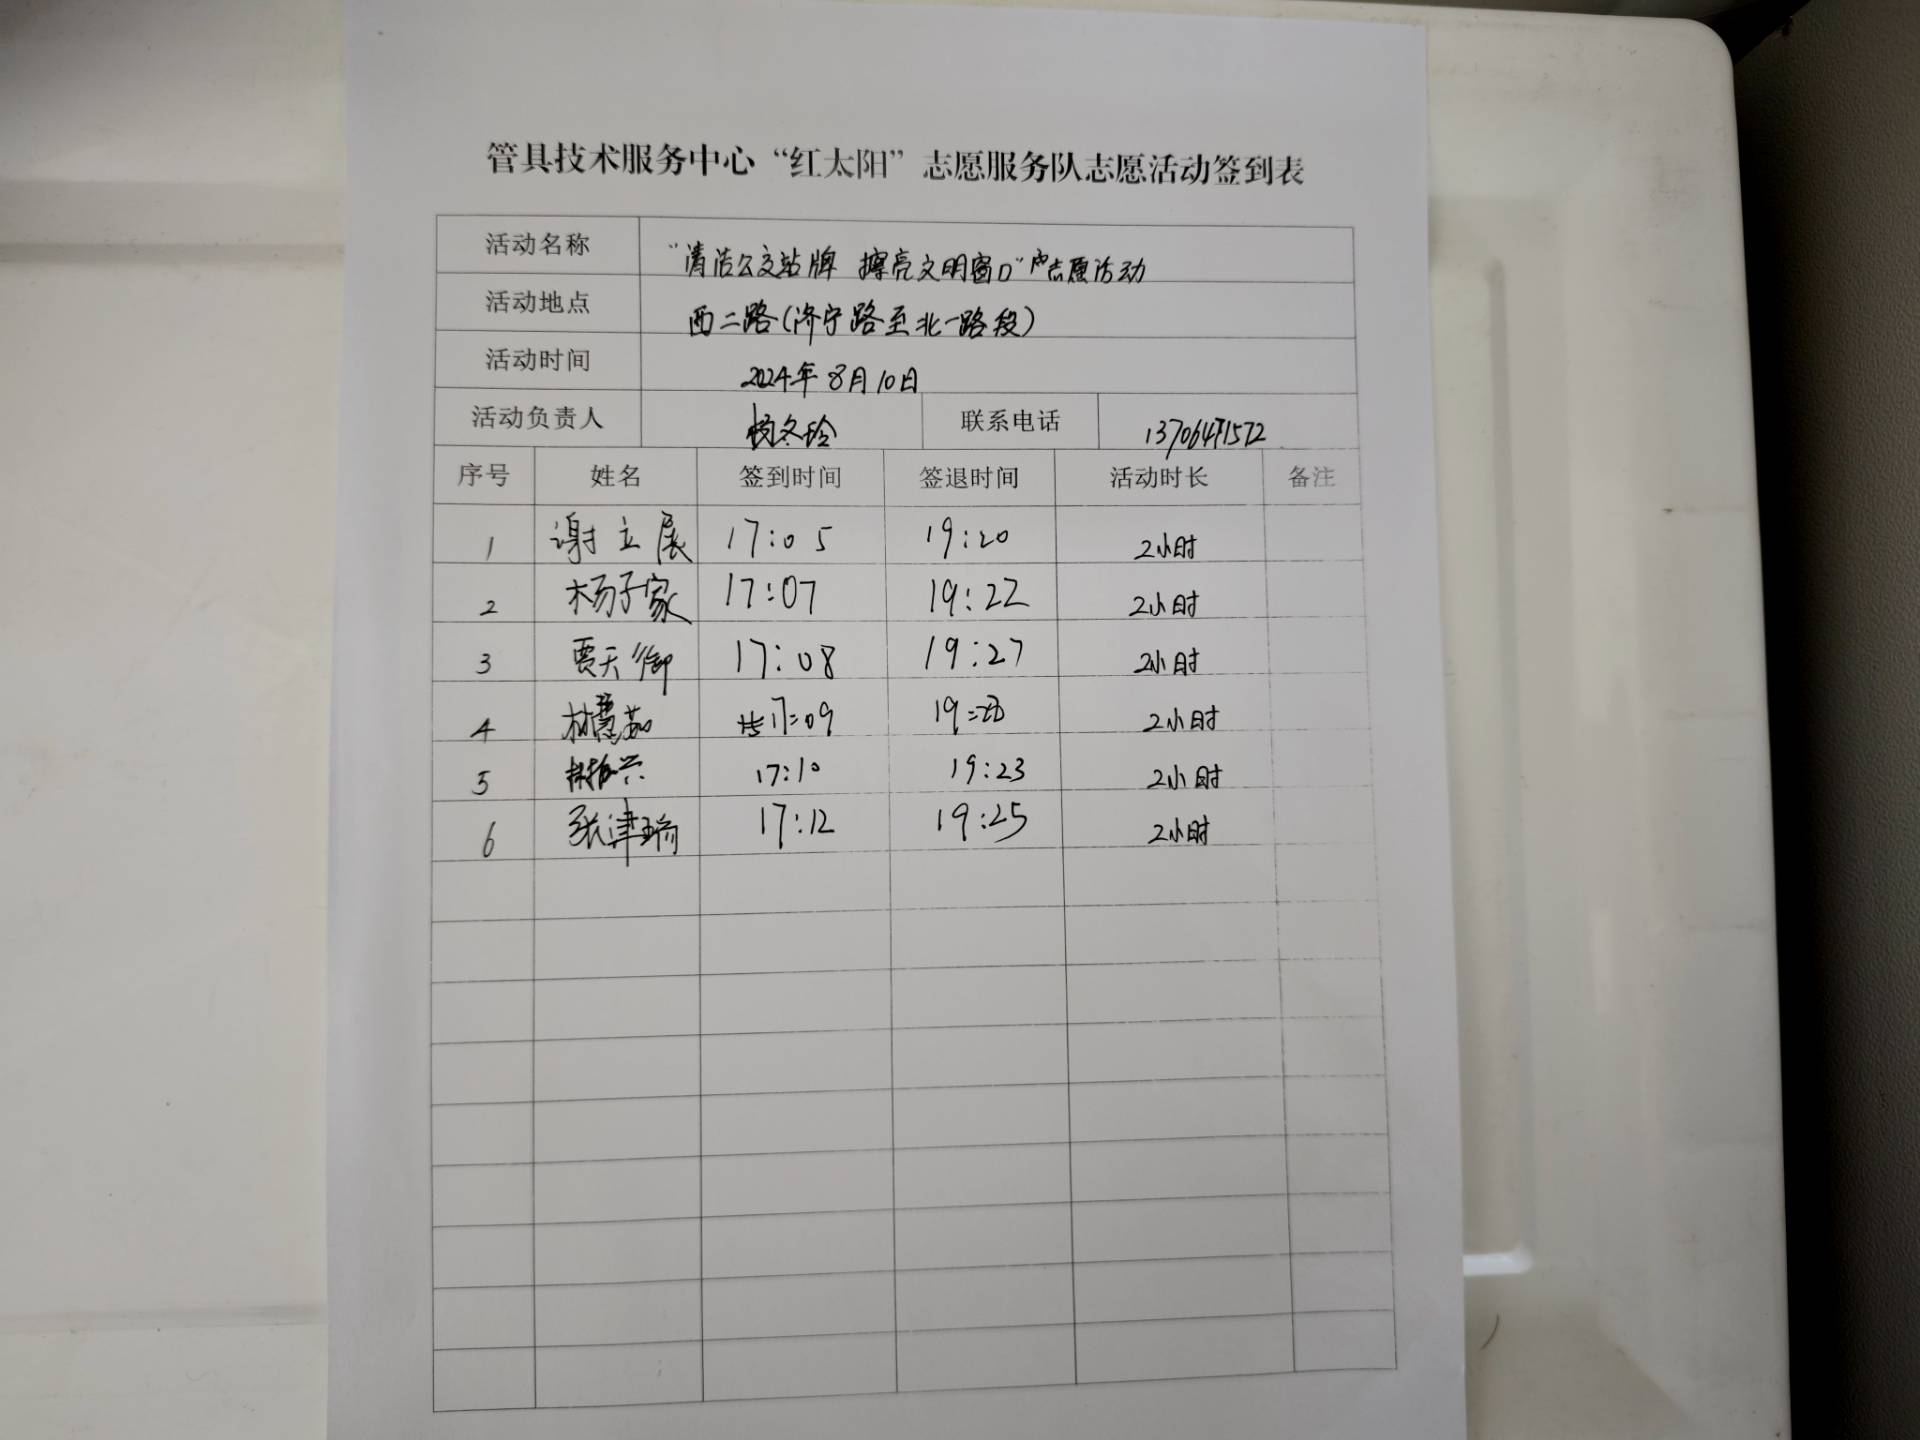 管具技术服务中心“红太阳”志愿服务队志愿活动签到表
活动名称 “清洁公交站牌 擦亮文明窗口”志愿活动
活动地点 西二路(济宁路至北一路段)
活动时间 2024年8月10日
活动负责人 杨冬玲 联系电话
序号 姓名 签到时间 签退时间 活动时长 备注
1 谢立展 17:05 19:20 2小时
2 杨子家 17:07 19:22 2小时
3 贾天御 17:08 19:27 2小时
4 林慧茹 17:09 2小时
5 17:10 19:23 2小时
6 张津瑞 17:12 19:25 2小时